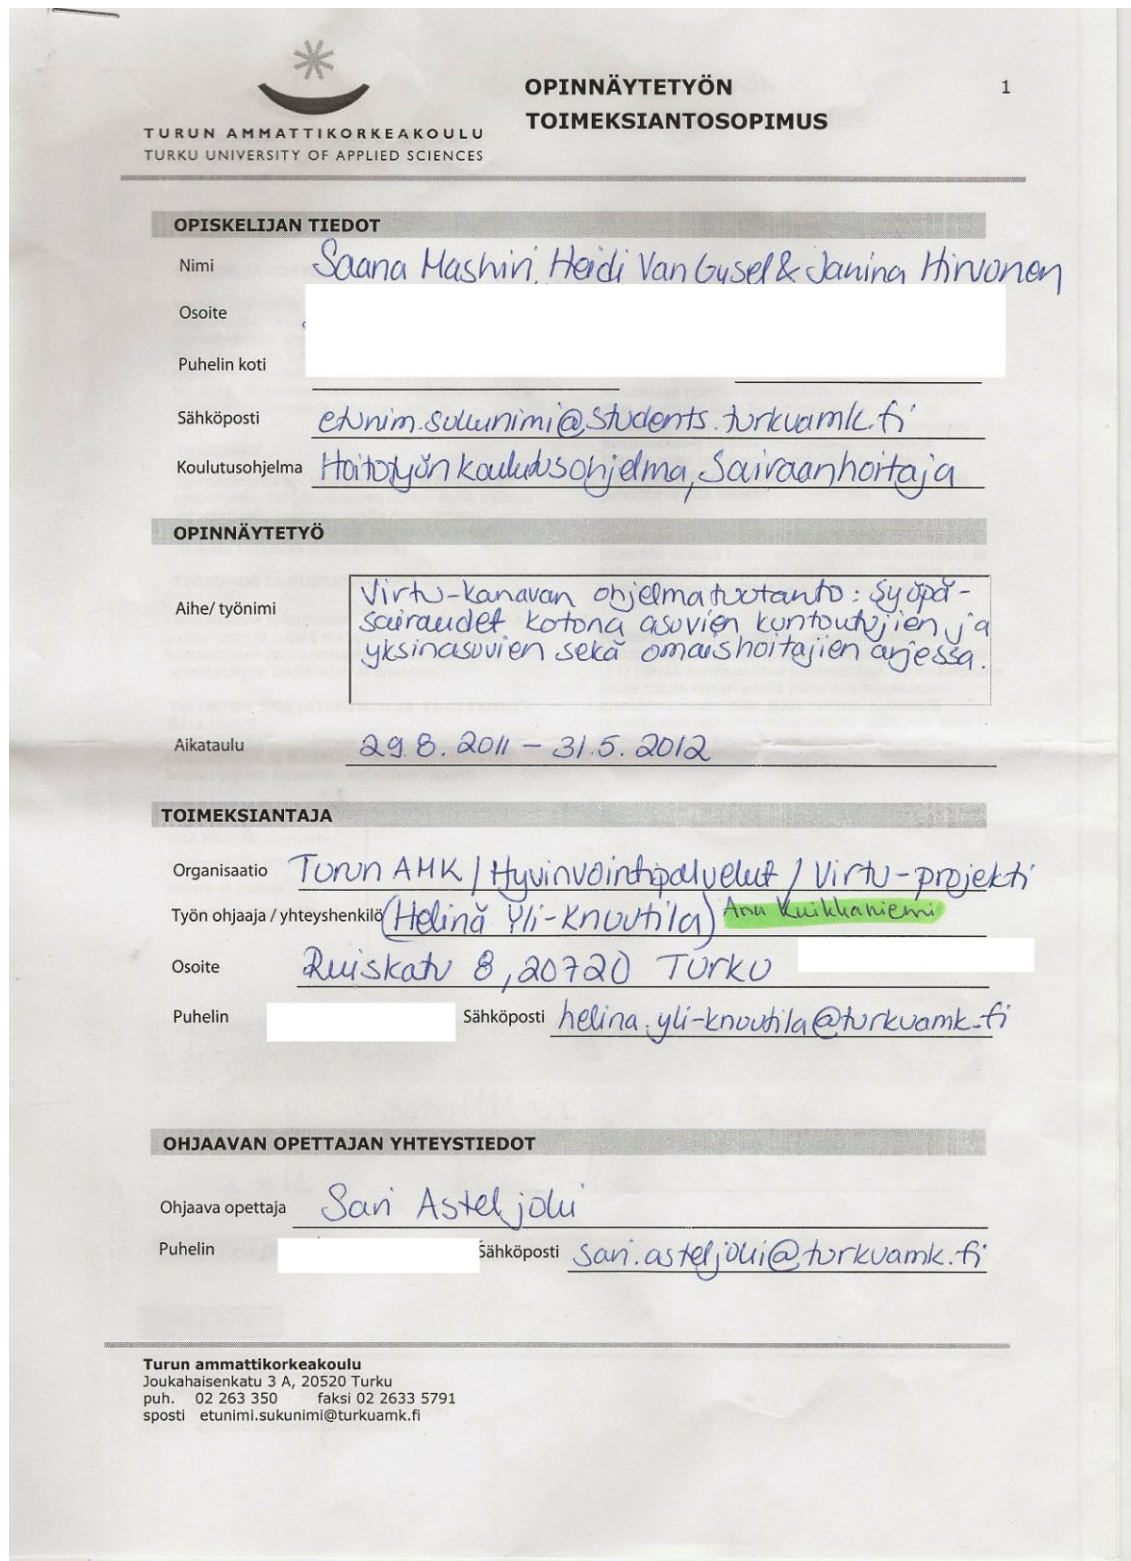 OPINNÄYTETYÖN
TOIMEKSIANTOSOPIMUS
1
TURUN AMMATTIKORKEAKOULU
TURKU UNIVERSITY OF APPLIED SCIENCES
OPISKELIJAN TIEDOT
Nimi Saana Mashiri, Heidi Van Gysel & Janina Hirvonen
Osoite
Puhelin koti
Sähköposti etunim.sukunimi@students.turkuamk.fi
Koulutusohjelma Hoitotyön koulutusohjelma, Sairaanhoitaja
OPINNÄYTETYÖ
Aihe/ työnimi Virtu-kanavan ohjelmatuotanto: Syöpä-
sairaudet kotona asuvien kuntoutujien ja
yksinasuvien sekä omaishoitajien arjessa.
Aikataulu 29.8.2011 – 31.5.2012
TOIMEKSIANTAJA
Organisaatio Turun AMK / Hyvinvointipalvelut / Virtu-projekti
Työn ohjaaja / yhteyshenkilö (Helinä Yli-Knuutila) Anu Kuikkaniemi
Osoite Ruiskatu 8, 20720 Turku
Puhelin Sähköposti helina.yli-knuutila@turkuamk.fi
OHJAAVAN OPETTAJAN YHTEYSTIEDOT
Ohjaava opettaja Sari Asteljoki
Puhelin Sähköposti sari.asteljoki@turkuamk.fi
Turun ammattikorkeakoulu
Joukahaisenkatu 3 A, 20520 Turku
puh. 02 263 350 faksi 02 2633 5791
sposti etunimi.sukunimi@turkuamk.fi